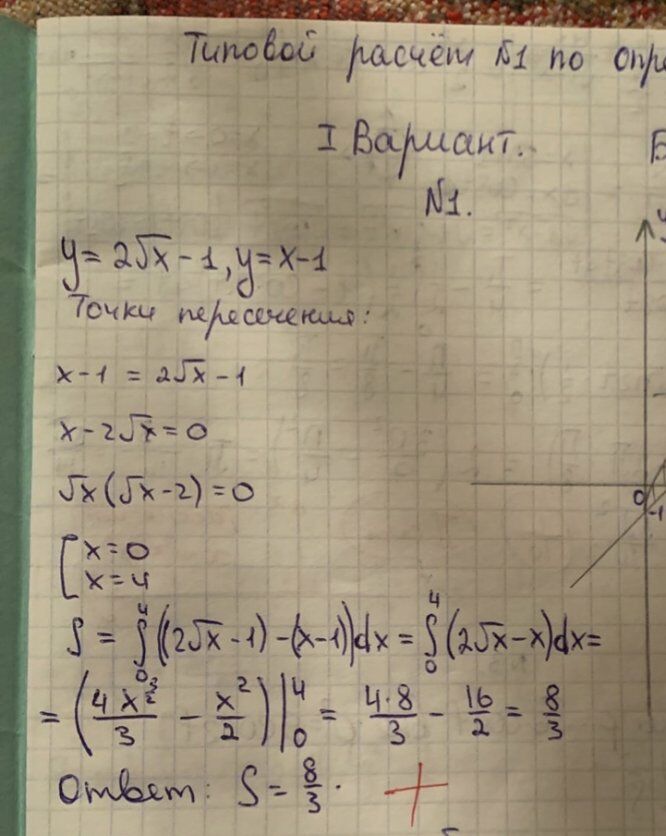 Типовой расчёт №1 по опре
I Вариант.
Б
№1.
y
y = 2√x - 1, y = x - 1
Точки пересечения:
x - 1 = 2√x - 1
x - 2√x = 0
√x (√x - 2) = 0
0
-1
[ x = 0
x = 4
S = ∫₀⁴ ((2√x - 1) - (x - 1)) dx = ∫₀⁴ (2√x - x) dx =
= (4x^(3/2)/3 - x²/2) |₀⁴ = 4·8/3 - 16/2 = 8/3
Ответ: S = 8/3.